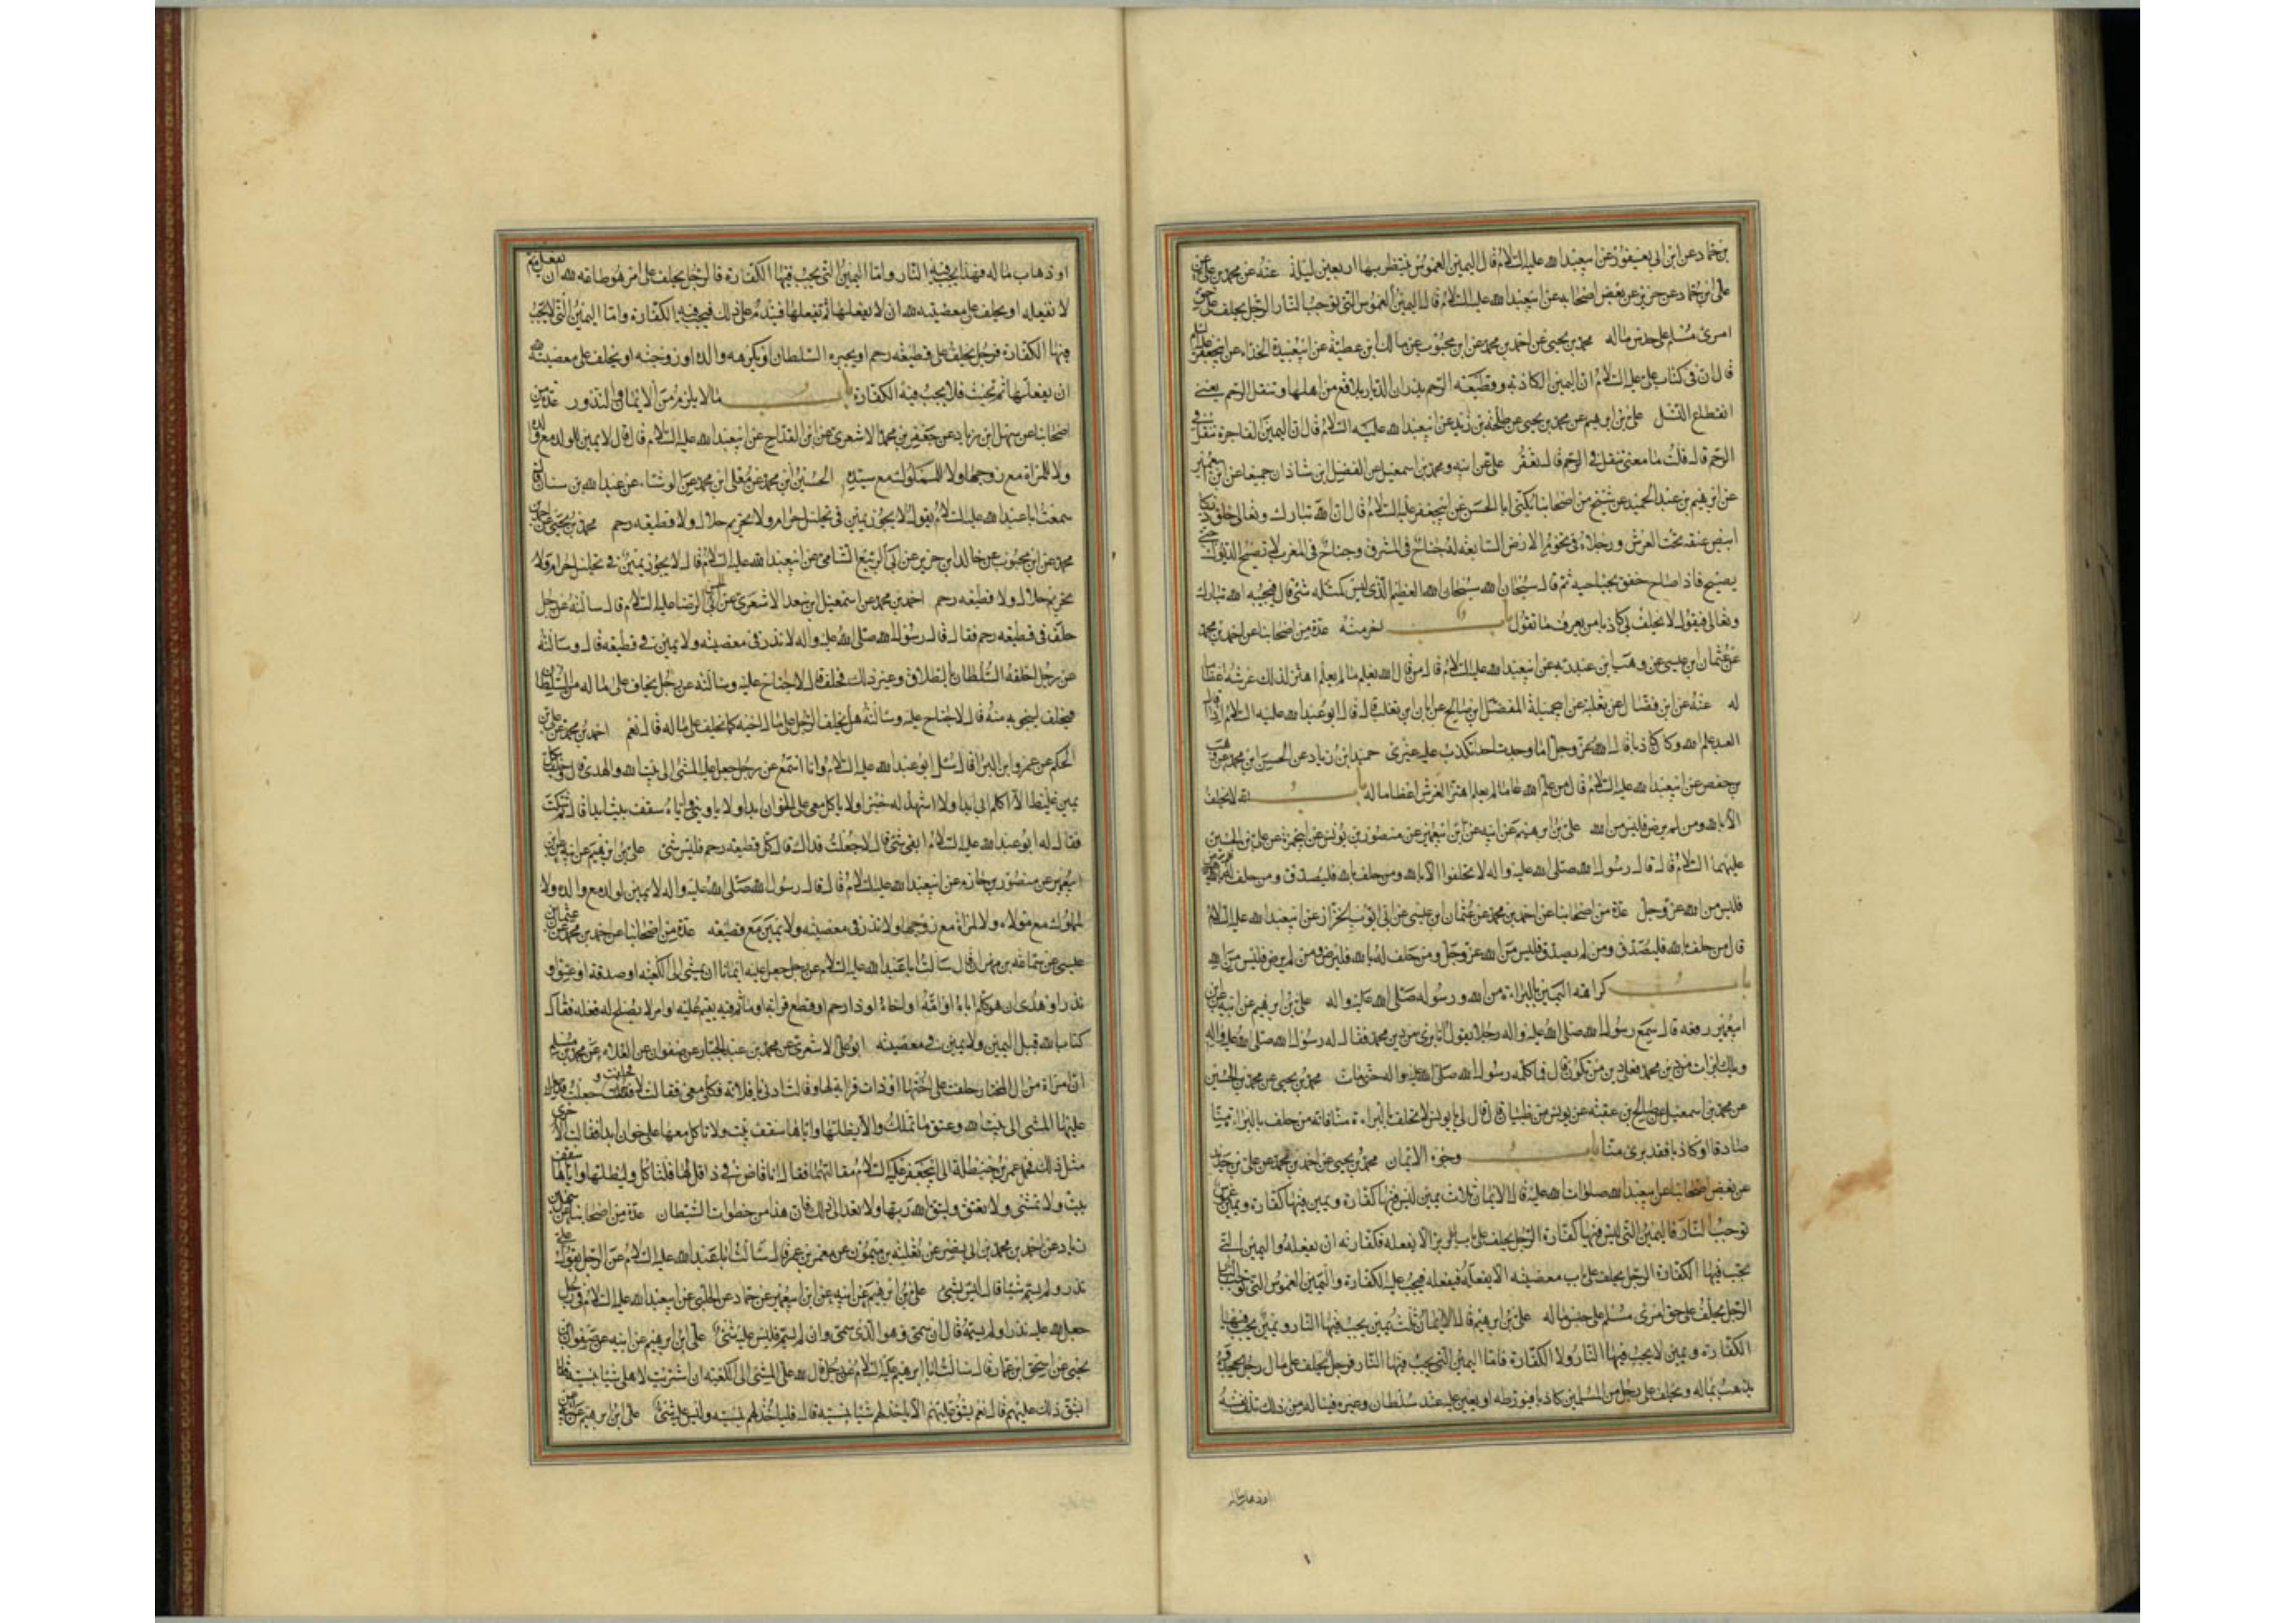 بن حماد عن ابن ابى يعفور عن ابيعبد الله عليه السلام قال اليمين الغموس ينتظر بها اربعين ليلة عنه عن محمد بن على عن
على بن حماد عن حريز عن بعض اصحابه عن ابيعبد الله عليه السلام قال اليمين الغموس التى توجب النار الرجل يحلف على حق
امرئ مسلم على حبس ماله محمد بن يحيى عن احمد بن محمد عن ابن محبوب عن مالك ابن عطية عن ابيعبيدة الحذاء عن ابيجعفر عليه السلم
قال ان فى كتاب على عليه السلام ان اليمين الكاذبة وقطيعة الرحم يذران الديار بلاقع من اهلها وتنقل الرحم يعنى
انقطاع النسل على بن ابرهيم عن محمد بن يحيى عن طلحة بن زيد عن ابيعبد الله عليه السلام قال ان اليمين الفاجرة تنقل فى
الرحم قال قلت ما معنى تنقل فى الرحم قال تعقر على عن ابيه ومحمد بن اسمعيل عن الفضل ابن شاذان جميعا عن ابن ابيعمير
عن ابرهيم بن عبد الحميد عن شيخ من اصحابنا يكنى ابا الحسن عن ابيجعفر عليه السلام قال ان الله تبارك وتعالى خلق ديكا
ابيض عنقه تحت العرش ورجلاه فى تخوم الارض السابعة له جناح فى المشرق وجناح فى المغرب لا تصيح الديوك حتى
يصيح فاذا صاح خفق بجناحيه ثم قال سبحان الله سبحان الله العظيم الذى ليس كمثله شئ قال فيجيبه الله تبارك
وتعالى فيقول لا يحلف بى كاذبا من يعرف ما تقول باب اخر منه عدة من اصحابنا عن احمد بن محمد
عن عثمان ابن عيسى عن وهب ابن عبد ربه عن ابيعبد الله عليه السلام قال من قال الله يعلم ما لم يعلم اهتز لذلك عرشه اعظاما
له عنه عن ابن فضال عن ثعلبة عن ابيجميلة المفضل ابن صالح عن ابان بن تغلب قال قال ابو عبد الله عليه السلام اذا قال
العبد علم الله وكان كاذبا قال الله عز وجل اما وجدت احدا تكذب عليه غيرى حميد ابن زياد عن الحسن ابن محمد عن وهيب
بن حفص عن ابيعبد الله عليه السلام قال من علم الله عما لم يعلم اهتز العرش اعظاما له باب انه لا يحلف
الا بالله ومن لم يرض فليس من الله على بن ابرهيم عن ابيه عن ابن ابيعمير عن منصور بن يونس عن ابيحمزة عن على بن الحسين
عليهما السلام قال قال رسول الله صلى الله عليه واله لا تحلفوا الا بالله ومن حلف بالله فليصدق ومن حلف له
فليس من الله عز وجل عدة من اصحابنا عن احمد بن محمد عن عثمان ابن عيسى عن ابى ايوب الخزاز عن ابيعبد الله عليه السلام
قال من حلف بالله فليصدق ومن لم يصدق فليس من الله عز وجل ومن حلف له بالله فليرض ومن لم يرض فليس من الله
باب كراهة اليمين بالبراءة من الله ورسوله صلى الله عليه واله على بن ابرهيم عن ابيه عن ابن
ابيعمير رفعه قال سمع رسول الله صلى الله عليه واله رجلا يقول انا برئ من دين محمد فقال له رسول الله صلى الله عليه واله
ويلك اذا برئت من دين محمد فعلى دين من تكون قال فما كلمه رسول الله صلى الله عليه واله حتى مات محمد بن يحيى عن محمد بن الحسين
عن محمد بن اسمعيل عن صالح بن عقبة عن يونس بن ظبيان قال قال لى يا يونس لا تحلف بالبراءة منا فانه من حلف بالبراءة منا
صادقا او كاذبا فقد برئ منا باب وجوه الايمان محمد بن يحيى عن احمد بن محمد عن على بن حديد
عن بعض اصحابنا عن ابيعبد الله صلوات الله عليه قال الايمان ثلاث يمين ليس فيها كفارة ويمين فيها كفارة ويمين غموس
توجب النار فاليمين التى ليس فيها كفارة الرجل يحلف على باب بر الا يفعله فكفارته ان يفعله واليمين التى
تجب فيها الكفارة الرجل يحلف على باب معصية الا يفعله فيفعله فيجب عليه الكفارة واليمين الغموس التى توجب النار
الرجل يحلف على حق امرئ مسلم على حبس ماله على بن ابرهيم قال الايمان ثلث يمين يجب فيها النار ويمين يجب فيها
الكفارة ويمين لا يجب فيها النار ولا الكفارة فاما اليمين التى يجب فيها النار فرجل يحلف على مال رجل يجحده
يذهب بماله ويحلف على رجل من المسلمين كاذبا فيورطه او يعين عليه عند سلطان وغيره فيناله من ذلك تلف نفسه
او ذهاب ماله
او ذهاب ماله فهذا يجب فيه النار واما اليمين التى يجب فيها الكفارة فالرجل يحلف على امر هو طاعة لله ان يفعله ثم
لا يفعله او يحلف على معصية لله ان لا يفعلها ثم يفعلها فيندم على ذلك فيجب فيه الكفارة واما اليمين التى لا يجب
فيها الكفارة فرجل يحلف على قطيعة رحم او يجبره السلطان او يكرهه والده او زوجته او يحلف على معصية لله
ان يفعلها ثم يحنث فلا يجب فيه الكفارة باب ما لا يلزم من الايمان والنذور عدة من
اصحابنا عن سهل ابن زياد عن جعفر بن محمد الاشعرى عن ابن القداح عن ابيعبد الله عليه السلام قال قال لا يمين للولد مع والده
ولا للمراة مع زوجها ولا للمملوك مع سيده الحسين بن محمد عن معلى ابن محمد عن الوشاء عن عبد الله بن سنان قال
سمعت ابا عبد الله عليه السلام يقول لا يجوز يمين فى تحليل حرام ولا تحريم حلال ولا قطيعة رحم محمد بن يحيى عن احمد بن
محمد عن ابن محبوب عن خالد ابن جرير عن ابى الربيع الشامى عن ابيعبد الله عليه السلام قال لا يجوز يمين فى تحليل حرام ولا
تحريم حلال ولا قطيعة رحم احمد بن محمد عن اسمعيل ابن سعد الاشعرى عن ابى الحسن الرضا عليه السلام قال سالته عن رجل
حلف فى قطيعة رحم فقال قال رسول الله صلى الله عليه واله لا نذر فى معصية ولا يمين فى قطيعة قال وسالته
عن رجل احلفه السلطان بالطلاق وغير ذلك فحلف قال لا جناح عليه وسالته عن رجل يخاف على ماله من السلطان
فيحلف لينجو به منه قال لا جناح عليه وسالته هل يحلف الرجل على مال اخيه كما يحلف على ماله قال نعم احمد بن محمد عن على بن
الحكم عن عمرو ابن البراء قال سئل ابو عبد الله عليه السلام وانا اسمع عن رجل جعل عليه المشى الى بيت الله والهدى قال وحلف بكل
يمين غليظ الا اكلم ابى ابدا ولا اشهد له خيرا ولا ياكل معى على الخوان ابدا ولا ياوينى واياه سقف بيت ابدا قال ثم سكت
فقال له ابو عبد الله عليه السلام ابقى شئ قال لا جعلت فداك قال كل قطيعة رحم فليس شئ على بن ابرهيم عن ابيه عن ابن
ابيعمير عن منصور بن حازم عن ابيعبد الله عليه السلام قال قال رسول الله صلى الله عليه واله لا يمين لولد مع والده ولا
لمملوك مع مولاه ولا لمراة مع زوجها ولا نذر فى معصية ولا يمين مع قطيعة عدة من اصحابنا عن احمد بن محمد عن عثمان بن
عيسى عن سماعة بن مهران قال سالت ابا عبد الله عليه السلام عن رجل جعل عليه ايمانا ان يمشى الى الكعبة او صدقة او عتق او
نذر او هدى ان هو كلم اباه او امه او اخاه او ذا رحم او قطع قرابة او ماثم فيه يقيم عليه او امر لا يصلح له فعله فقال
كتاب الله قبل اليمين ولا يمين فى معصية ابو على الاشعرى عن محمد بن عبد الجبار عن صفوان عن العلاء عن محمد بن مسلم
ان امراة من ال المختار حلفت على اختها او ذات قرابة لها وقالت ادنى يا فلانة فكلى معى فقالت لا فحلفت وجعلت
عليها المشى الى بيت الله وعتق ما تملك والا يظلها واياها سقف بيت ولا تاكل معها على خوان ابدا فقالت الاخرى
مثل ذلك فحمل عمر بن حنظلة الى ابيجعفر عليه السلام مقالتهما فقال انا قاض فى ذا قل لها فلتاكل وليظلها واياها سقف
بيت ولا تمشى ولا تعتق وليتق الله ربها ولا تعد الى ذلك فان هذا من خطوات الشيطان عدة من اصحابنا عن سهل بن
زياد عن احمد بن محمد بن ابى نصر عن ثعلبة بن ميمون عن معمر بن عمر قال سالت ابا عبد الله عليه السلام عن الرجل يقول على
نذر ولم يسم شيئا قال ليس بشئ على بن ابرهيم عن ابيه عن ابن ابيعمير عن حماد عن الحلبى عن ابيعبد الله عليه السلام فى رجل
جعل لله عليه نذرا ولم يسمه قال ان سمى فهو الذى سمى وان لم يسم فليس عليه شئ على ابن ابرهيم عن ابيه عن صفوان بن
يحيى عن اسحق ابن عمار قال سالت ابا ابرهيم عليه السلام عن رجل قال لله على المشى الى الكعبة ان اشتريت لاهلى شيئا بنسية فقال
ايشق ذلك عليهم قال نعم يشق عليهم الا ياخذ لهم شيئا بنسية قال فلياخذ لهم بنسية وليس عليه شئ على ابن ابرهيم عن ابيه عن